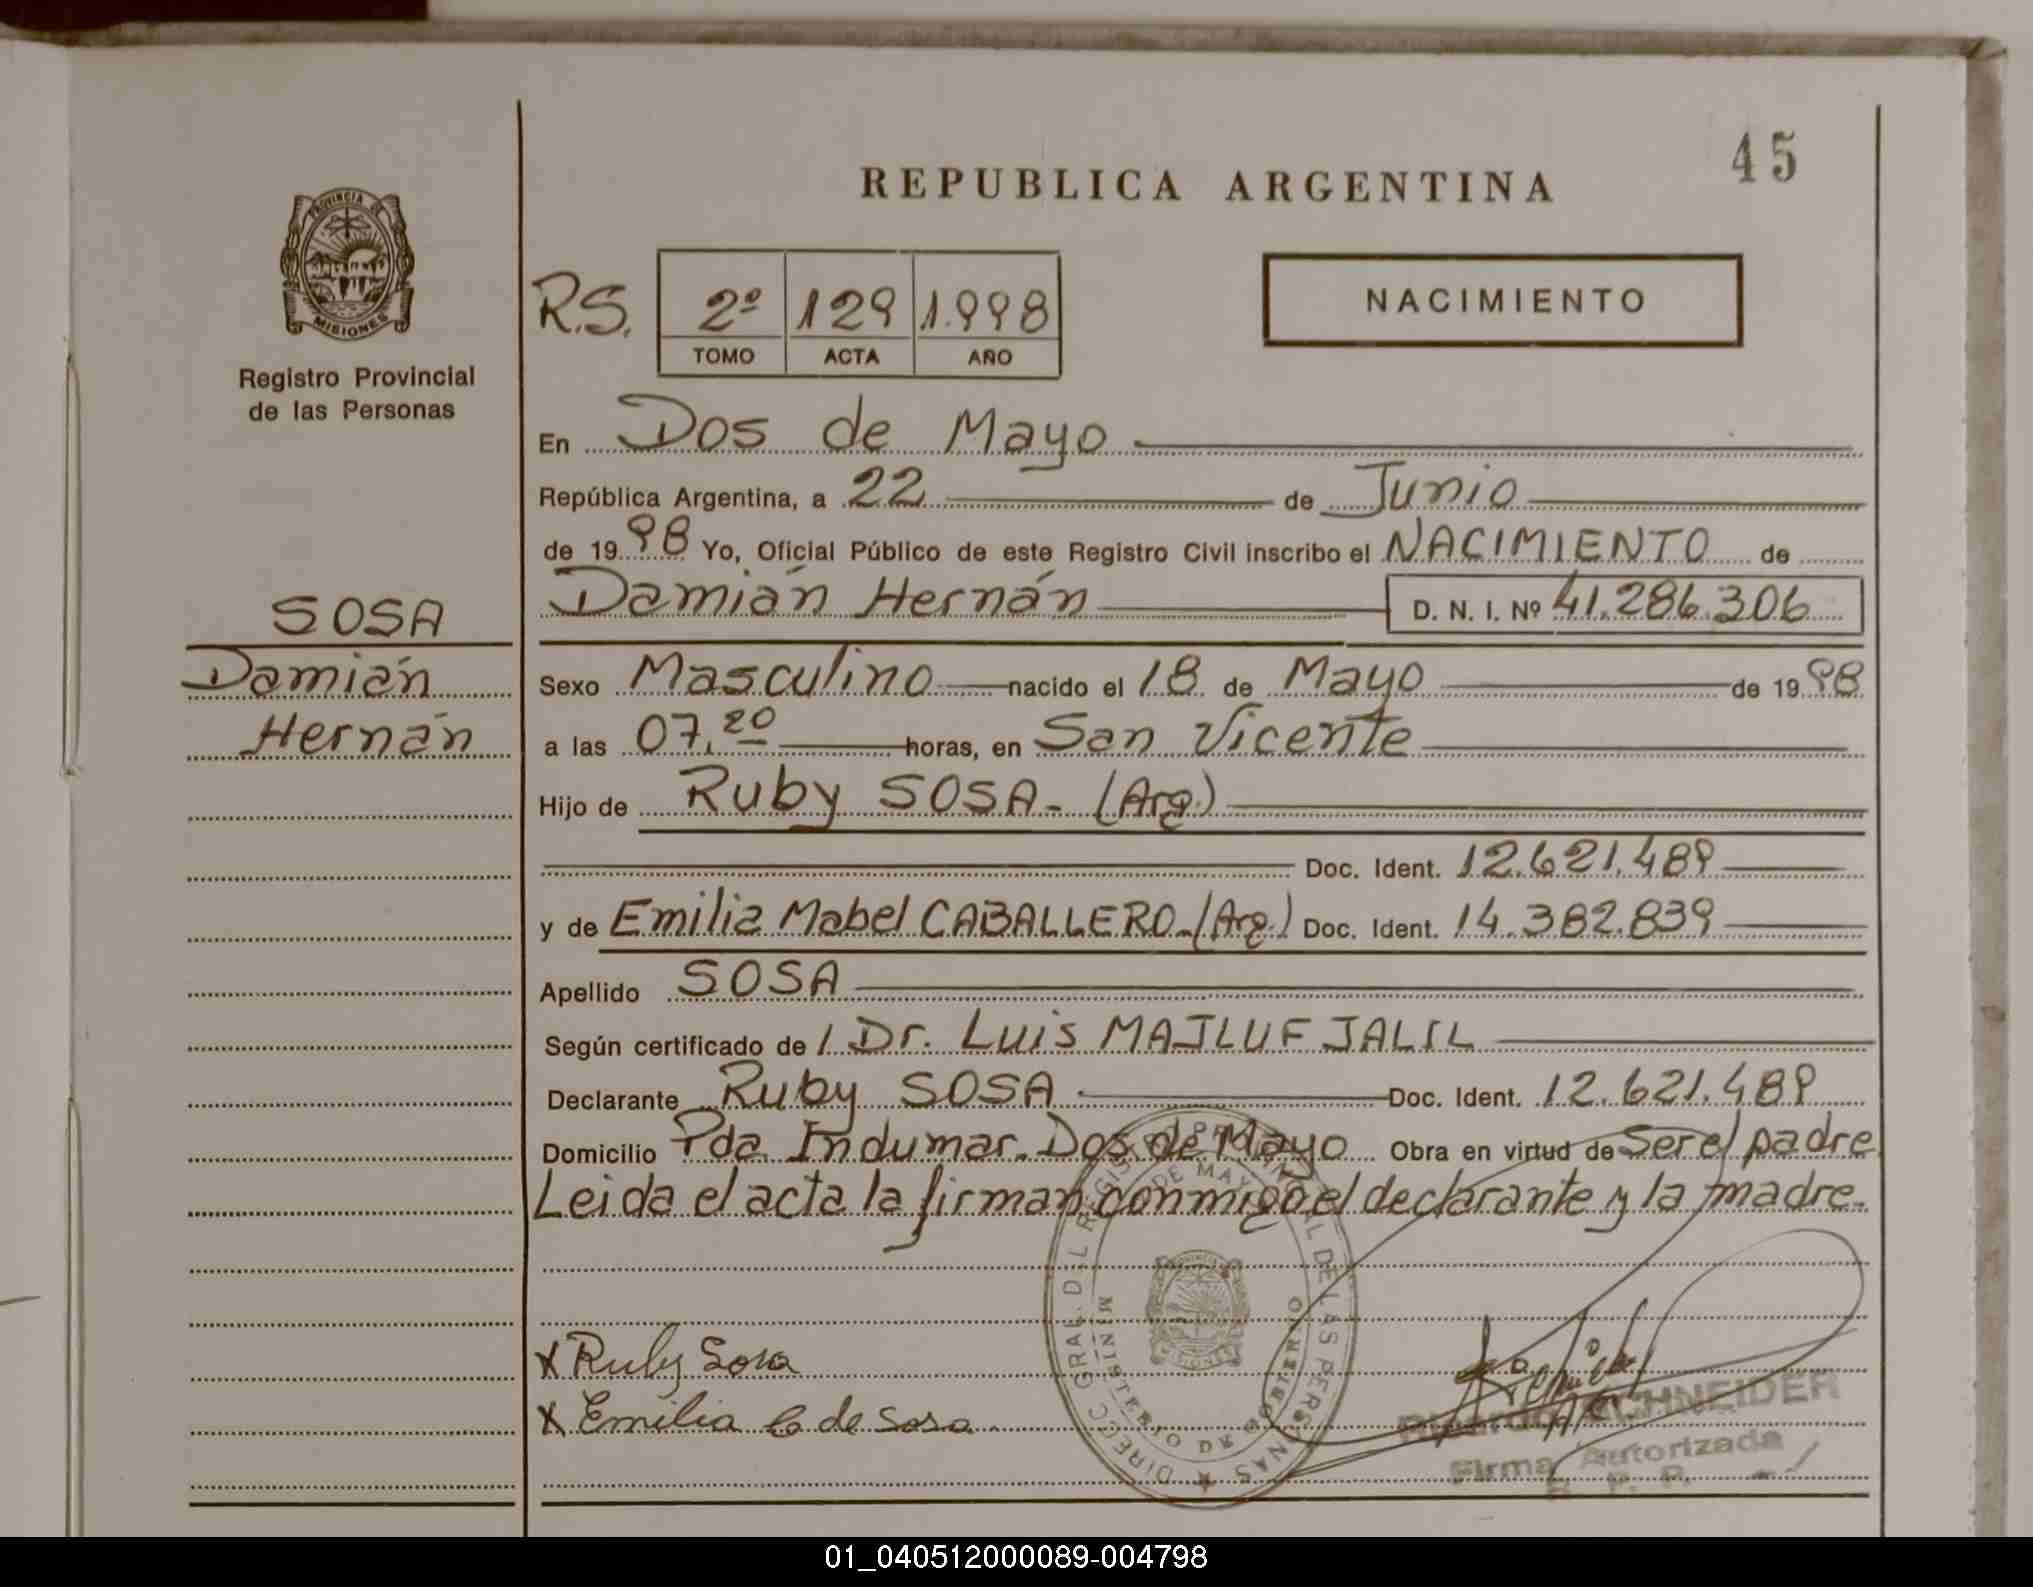 45
REPUBLICA ARGENTINA
PROVINCIA DE
MISIONES
Registro Provincial
de las Personas
R.S. 2º 129 1.998
TOMO ACTA AÑO
NACIMIENTO
En Dos de Mayo
República Argentina, a 22 de Junio
de 1998 Yo, Oficial Público de este Registro Civil inscribo el NACIMIENTO de
Damián Hernán D. N. I. Nº 41.286.306
SOSA
Damián
Hernán
Sexo Masculino nacido el 18 de Mayo de 1998
a las 07.20 horas, en San Vicente
Hijo de Ruby SOSA - (Arg.)
Doc. Ident. 12.621.489
y de Emilia Mabel CABALLERO - (Arg.) Doc. Ident. 14.382.839
Apellido SOSA
Según certificado de / Dr. Luis MAJLUF JALIL
Declarante Ruby SOSA Doc. Ident. 12.621.489
Domicilio Pda. Indumar. Dos de Mayo Obra en virtud de Ser el padre
Leida el acta la firman conmigo el declarante y la madre.
DIRECC GRAL DEL REGISTRO PROVINCIAL DE LAS PERSONAS
DOS DE MAYO
MINISTERIO DE GOBIERNO
MISIONES
x Ruby Sosa
x Emilia C de Sosa
Ricardo SCHNEIDER
Firma Autorizada
R. P. P.
01_040512000089-004798